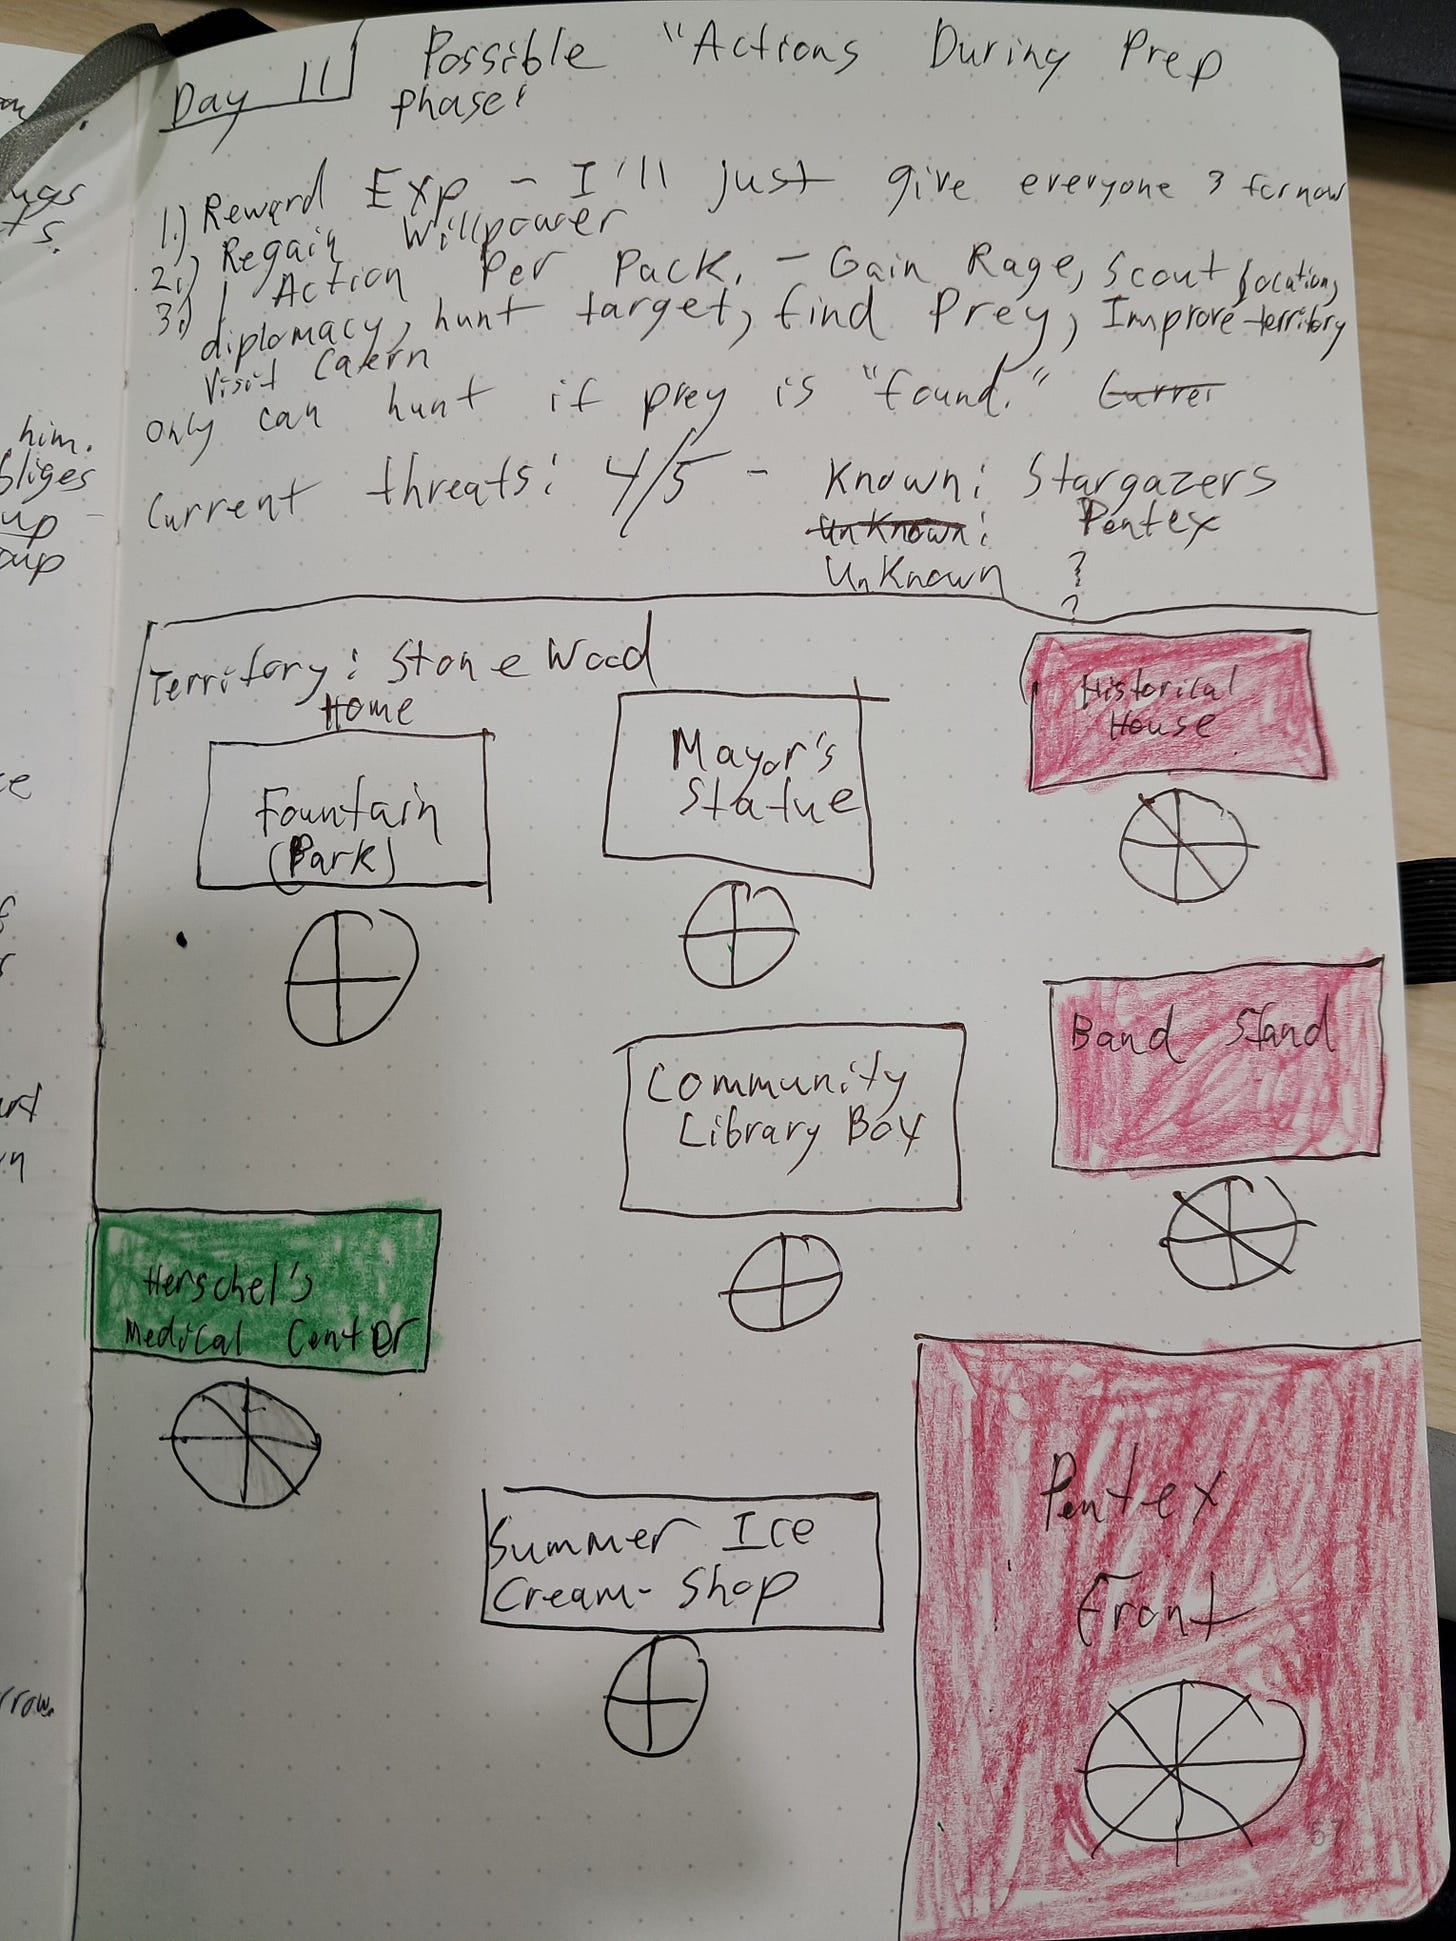 Day 11
Possible "Actions During Prep
phase:
1.) Reward Exp - I'll just give everyone 3 for now
2.) Regain Willpower
3.) 1 Action Per Pack. - Gain Rage, Scout location,
diplomacy, hunt target, find Prey, Improve territory
Visit Caern
only can hunt if prey is "found."
Current threats: 4/5 - Known: Stargazers
UnKnown: Pentex
UnKnown ?
?
Territory: Stone Wood
Home
Fountain
(Park)
Mayor's
Statue
Historical
House
Band Stand
Community
Library Box
Herschel's
Medical Center
Summer Ice
Cream-Shop
Pentex
Front
57
him.
up -